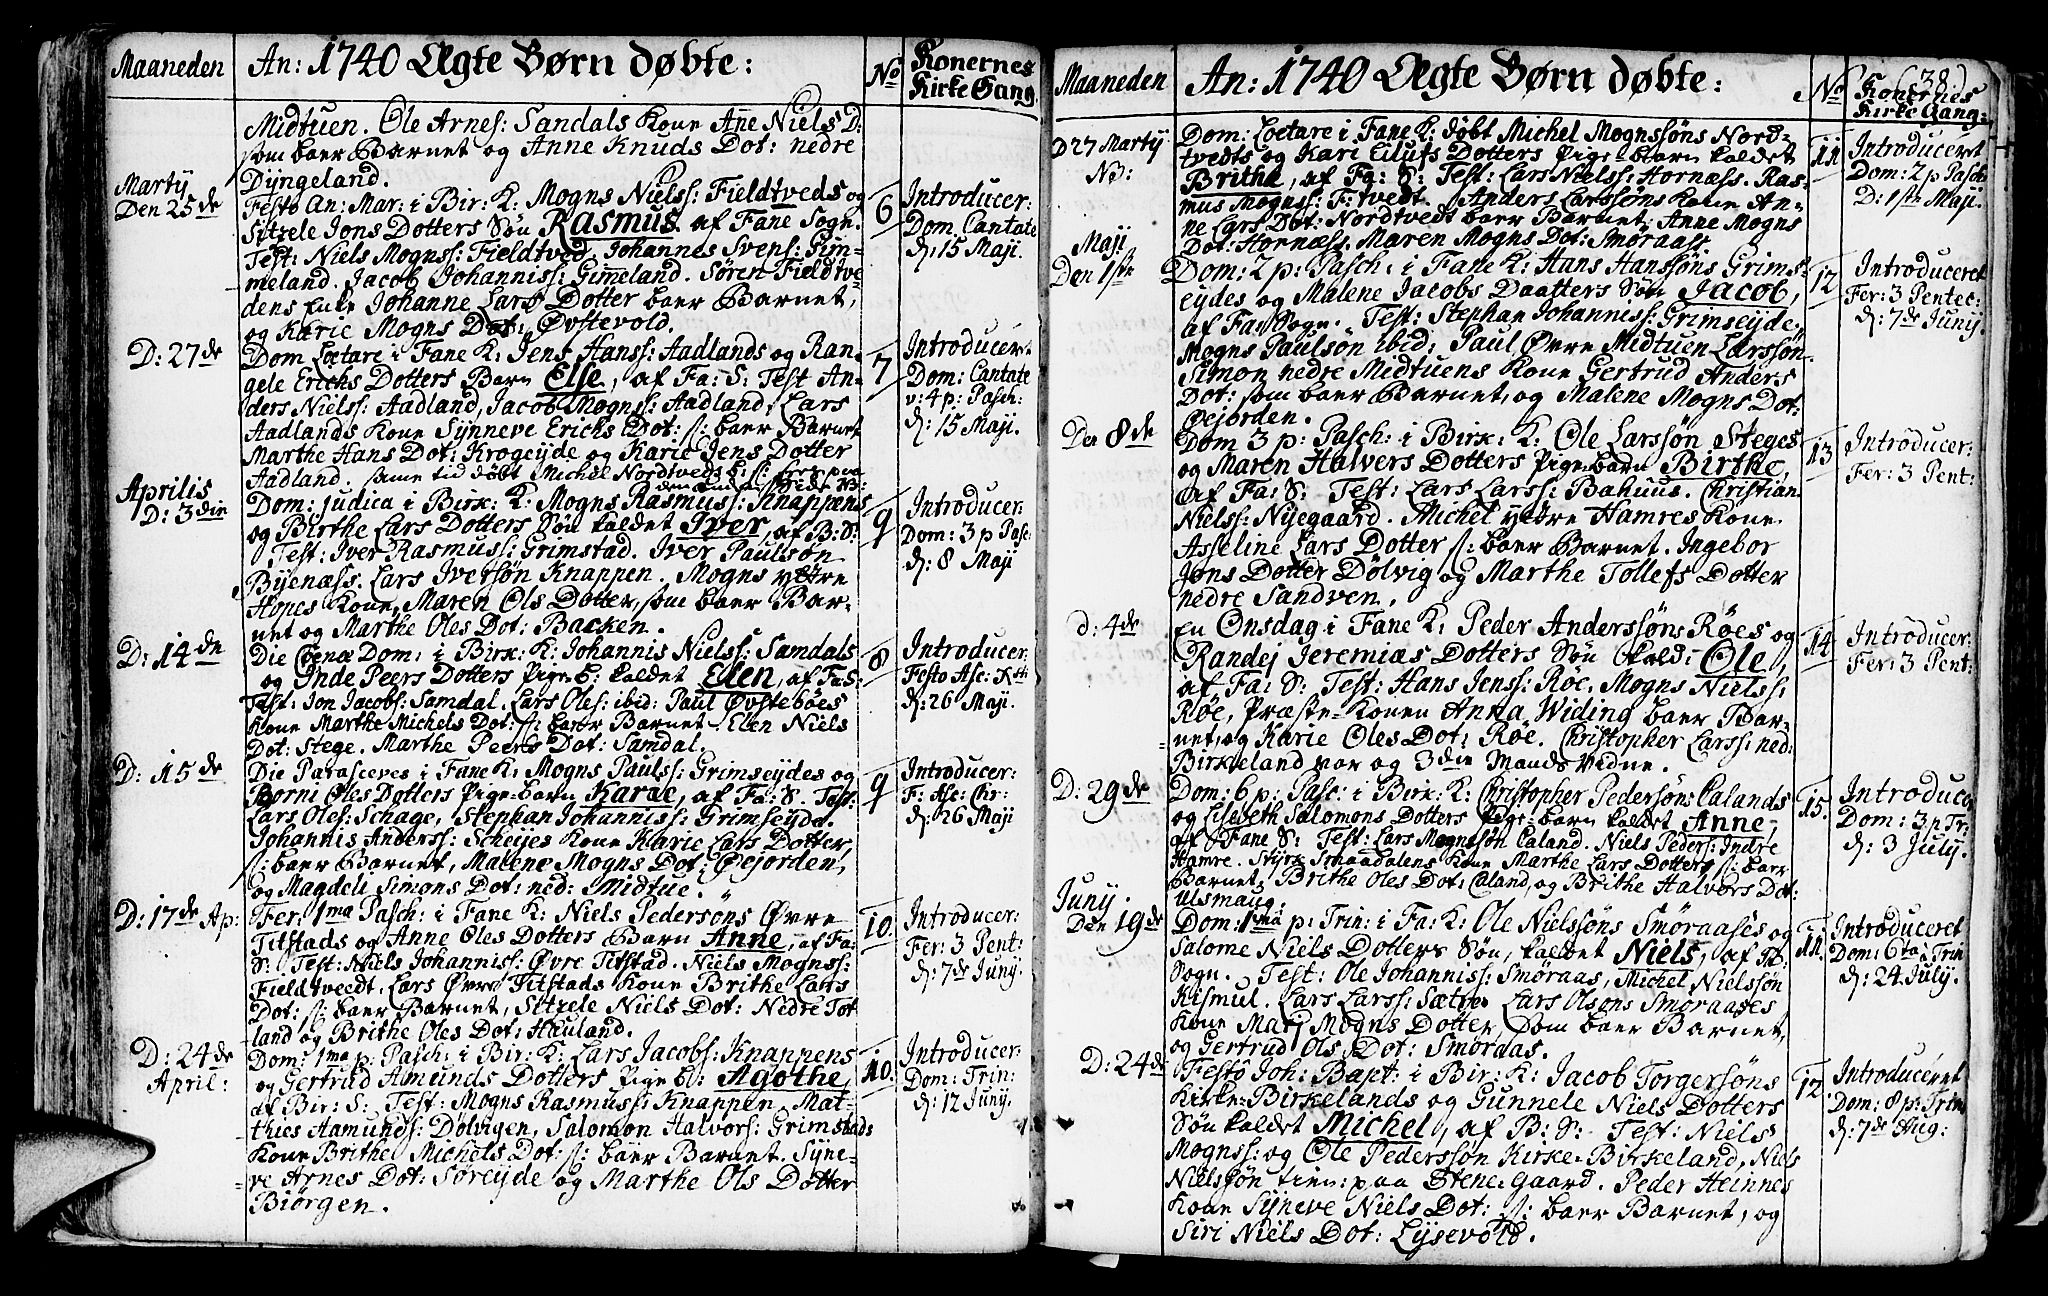 Maaneden
An: 1740 Ægte Børn døbte:
No
Konernes
Kirke Gang.
Midtuen. Ole Arnes: Sandals Kone Ane Niels D:
som baer Barnet og Anne Knuds Dot: nedre
Dÿngeland.
Martÿ
Den 25de
Festo An: Mar: i Bir: K: Mogns Nielss: Fieldtveds og
Sitzele Jons Dotters Søn Rasmus af Fane Sogn.
Test: Niels Mognss: Fieldtved. Johannes Svens: Gim-
meland. Jacob Johaniss: Gimeland. Søren Fieldtve
dens Enke Johanne Lars Dotter baer Barnet,
og Karie Mogns Dot: Øvstevold.
6
Introducer:
Dom. Cantate
d: 15 Maji.
D: 27de
Dom. Lœtare i Fane K: Jens Hanss: Aadlands og Ran-
gele Erichs Dotters Barn Else, af Fa: S: Test An-
ders Nielss: Aadland, Jacob Mognss: Aadland. Lars
Aadlands Kone Sÿnneve Erichs Dot: s: baer Barnet
Marthe Hans Dot: Krogeÿde og Karie Jens Dotter
Aadland. same tid døbt Michel Nordtveds b:
7
Introduceret
Dom: Cantate
v: 4 p: Pasch:
d: 15 Maji.
Aprilis
D: 3die
Dom: judica i Birk: K: Mogns Rasmuss: Knappens
og Birthe Lars Dotters Søn kaldet Iver, af B: S:
Test: Iver Rasmuss: Grimstad. Iver Paulsøn
Bÿenæss. Lars Iversøn Knappen. Mogns ÿtre
Hopes Kone, Maren Ols Dotter, som baer Bar-
net og Marthe Oles Dot: Backen.
9
Introducer:
Dom: 3 p Pasc:
d: 8 Maji
D: 14de
Die Cœnæ Dom: i Birk: K: Johannis Nielss: Samdals
og Inde Peers Dotters Pige b: kaldet Elen, af Fa S:
Test: Jon Jacobs: Samdal. Lars Oles: ibid: Paul Øvstebøes
Kone Marthe Michels Dot: s: baer Barnet. Elen Niels
Dot: Stege. Marthe Peers Dot: Samdal.
8
Introducer:
Festo Asc: Xsti
d: 26 Maji.
D: 15de
Die Parasceves i Fane K: Mogns Pauls: Grimseÿdes og
Børni Oles Dotters Pige-barn Karae, af Fa: S. Test:
Lars Oles: Schage, Stephan Johanniss: Grimseÿde.
Johannis Anderss: Scheÿes Kone Karie Lars Dotter,
s: baer Barnet, Malene Mogns Dot: Øejorden,
og Magdeli Simons Dot: ned: Midtue.
9
Introducer:
F: Asc: Chr:
d: 26 Maji
D: 17de Ap:
Fer: 1ma Pasch: i Fane K: Niels Pedersøns Øvre
Titstads og Anne Oles Dotters Barn Anne, af Fa:
S: Test: Niels Johanniss: Øvre Titstad. Niels Mognss:
Fieldtveedt, Lars Øvre Titstads Kone Brithe Lars
Dot: s: baer Barnet, Sitzele Niels Dot: Nedre Tit
land og Brithe Oles Dot: Hauland.
10.
Introducer:
Fer: 3 Pent:
d: 7de Junÿ.
D: 24de
April:
Dom: 1ma p: Pasch: i Bir: K: Lars Jacobs: Knappens
og Gertrud Amunds Dotters Pige b: Agothe,
af Bir: S: Test: Mogns Rasmuss: Knappen, Mat-
thies Aamunds: Dølvigen, Salomon Halvors: Grimstads
Kone Brithe Michels Dot: s: baer Barnet. Sÿne-
ve Arnes Dot: Søreÿde og Marthe Ols Dotter
Biørgen.
10.
Introducer:
Dom: Trin:
d: 12 Junÿ.
Maaneden
An: 1740 Ægte Børn døbte:
No
(38.)
Konernes
Kirke Gang:
D 27 Martÿ
NB:
Dom: Lœtare i Fane K: døbt Michel Mognssøns Nord-
tvedts og Kari Eilufs Dotters Pige-barn kaldet
Brithe, af Fa: S: Test: Lars Nielss: Hornæss. Ras-
mus Mognss: F: tvedt. Anders Larssøns Kone An-
ne Lars Dot: Nordtvedt baer Barnet. Anne Mogns
Dot: Hornæss. Maren Mogns Dot: Smøraass.
11
Introduceret
Dom: 2 p Pasch
D: 1ste Maji.
Maji
Den 1ste
Dom: 2 p: Pasch: i Fane K: Hans Hanssøns Grims-
eÿdes og Malene Jacobs Daatters Søn Jacob,
af Fa: Sogn. Test: Stephan Johanniss: Grimseÿde,
Mogns Paulsøn ibid: Paul Øvre Midtuen Larssøn.
Simon nedre Midtuens Kone Gertrud Anders
Dot: som baer Barnet, og Malene Mogns Dot:
Øejorden.
12
Introduceret
Fer: 3 Pentec:
d: 7de Junÿ
Den 8de
Dom 3 p: Pasch: i Birk: K: Ole Larssøn Steges
og Maren Halvers Dotters Pige-barn Birthe,
af Fa: S: Test: Lars Larss: Bahuus. Christian
Nielss: Nÿegaard. Michel ÿtre Hamres Kone
Asseline Lars Dotter s: baer Barnet. Ingebor
Jons Dotter Dølvig og Marthe Tollefs Dotter
nedre Sandven.
13
Introducer:
Fer: 3 Pent:
d: 4de
En Onsdag i Fane K: Peder Anderssøns Røes og
Randej Jeremiæs Dotters Søn kald: Ole,
af Fa: S: Test: Hans Jenss: Røe, Mogns Nielss:
Røe, Præste-Konen Anna Widing baer Bar-
net, og Karie Oles Dot: Røe. Christopher Larss: ned:
Birkeland var og 3die Mands Vidne.
14
Introducer:
Fer: 3 Pent:
D: 29de
Dom: 6 p: Pasc: i Birk: K: Christopher Pedersøns Calands
og Lisebeth Salomons Dotters Pige-barn kaldet Anne,
af Fane S: Test: Lars Mognssøn Caland. Niels Peders: Indre
Hamre. Stÿrk Smaadalens Kone Marthe Lars Dotter s: baer
Barnet, Brithe Oles Dot: Caland, og Brithe Halvors Dot:
Ulsmaug.
15.
Introduce
Dom: 3 p Tr:
d: 3 Julÿ.
Junÿ.
Den 19de
Dom: 1ma p: Trin: i Fa: K: Ole Nielssøns Smøraases og
Salome Niels Dotters Søn, kaldet Niels, af F:
Sogn. Test: Ole Johanniss: Smøraas, Michel Nielssøn
Kismul. Lars Larss: Sætre. Lars Olsøns Smøraases
Kone Marj Mogns Dotter, som baer Barnet,
og Gertrud Ols Dot: Smøraas.
11.
Introduceret
Dom: 6ta à Trin
d: 24 Julÿ.
D: 24de
Festo Joh: Bapt: i Bir: K: Jacob Torgersøns
Kirke-Birkelands og Gunnele Niels Dotters
Søn kaldet Michel, af B: S: Test: Niels
Mognss: og Ole Pederssøn Kirke-Birkeland, Niels
Nielsøn tien: paa Stene-Gaard. Peder Heinnes
Kone Sÿneve Niels Dot: s: baer Barnet, og
Siri Niels Dot: Lÿsevold.
12.
Introduceret
Dom: 8 p: Trin
d: 7de Aug: